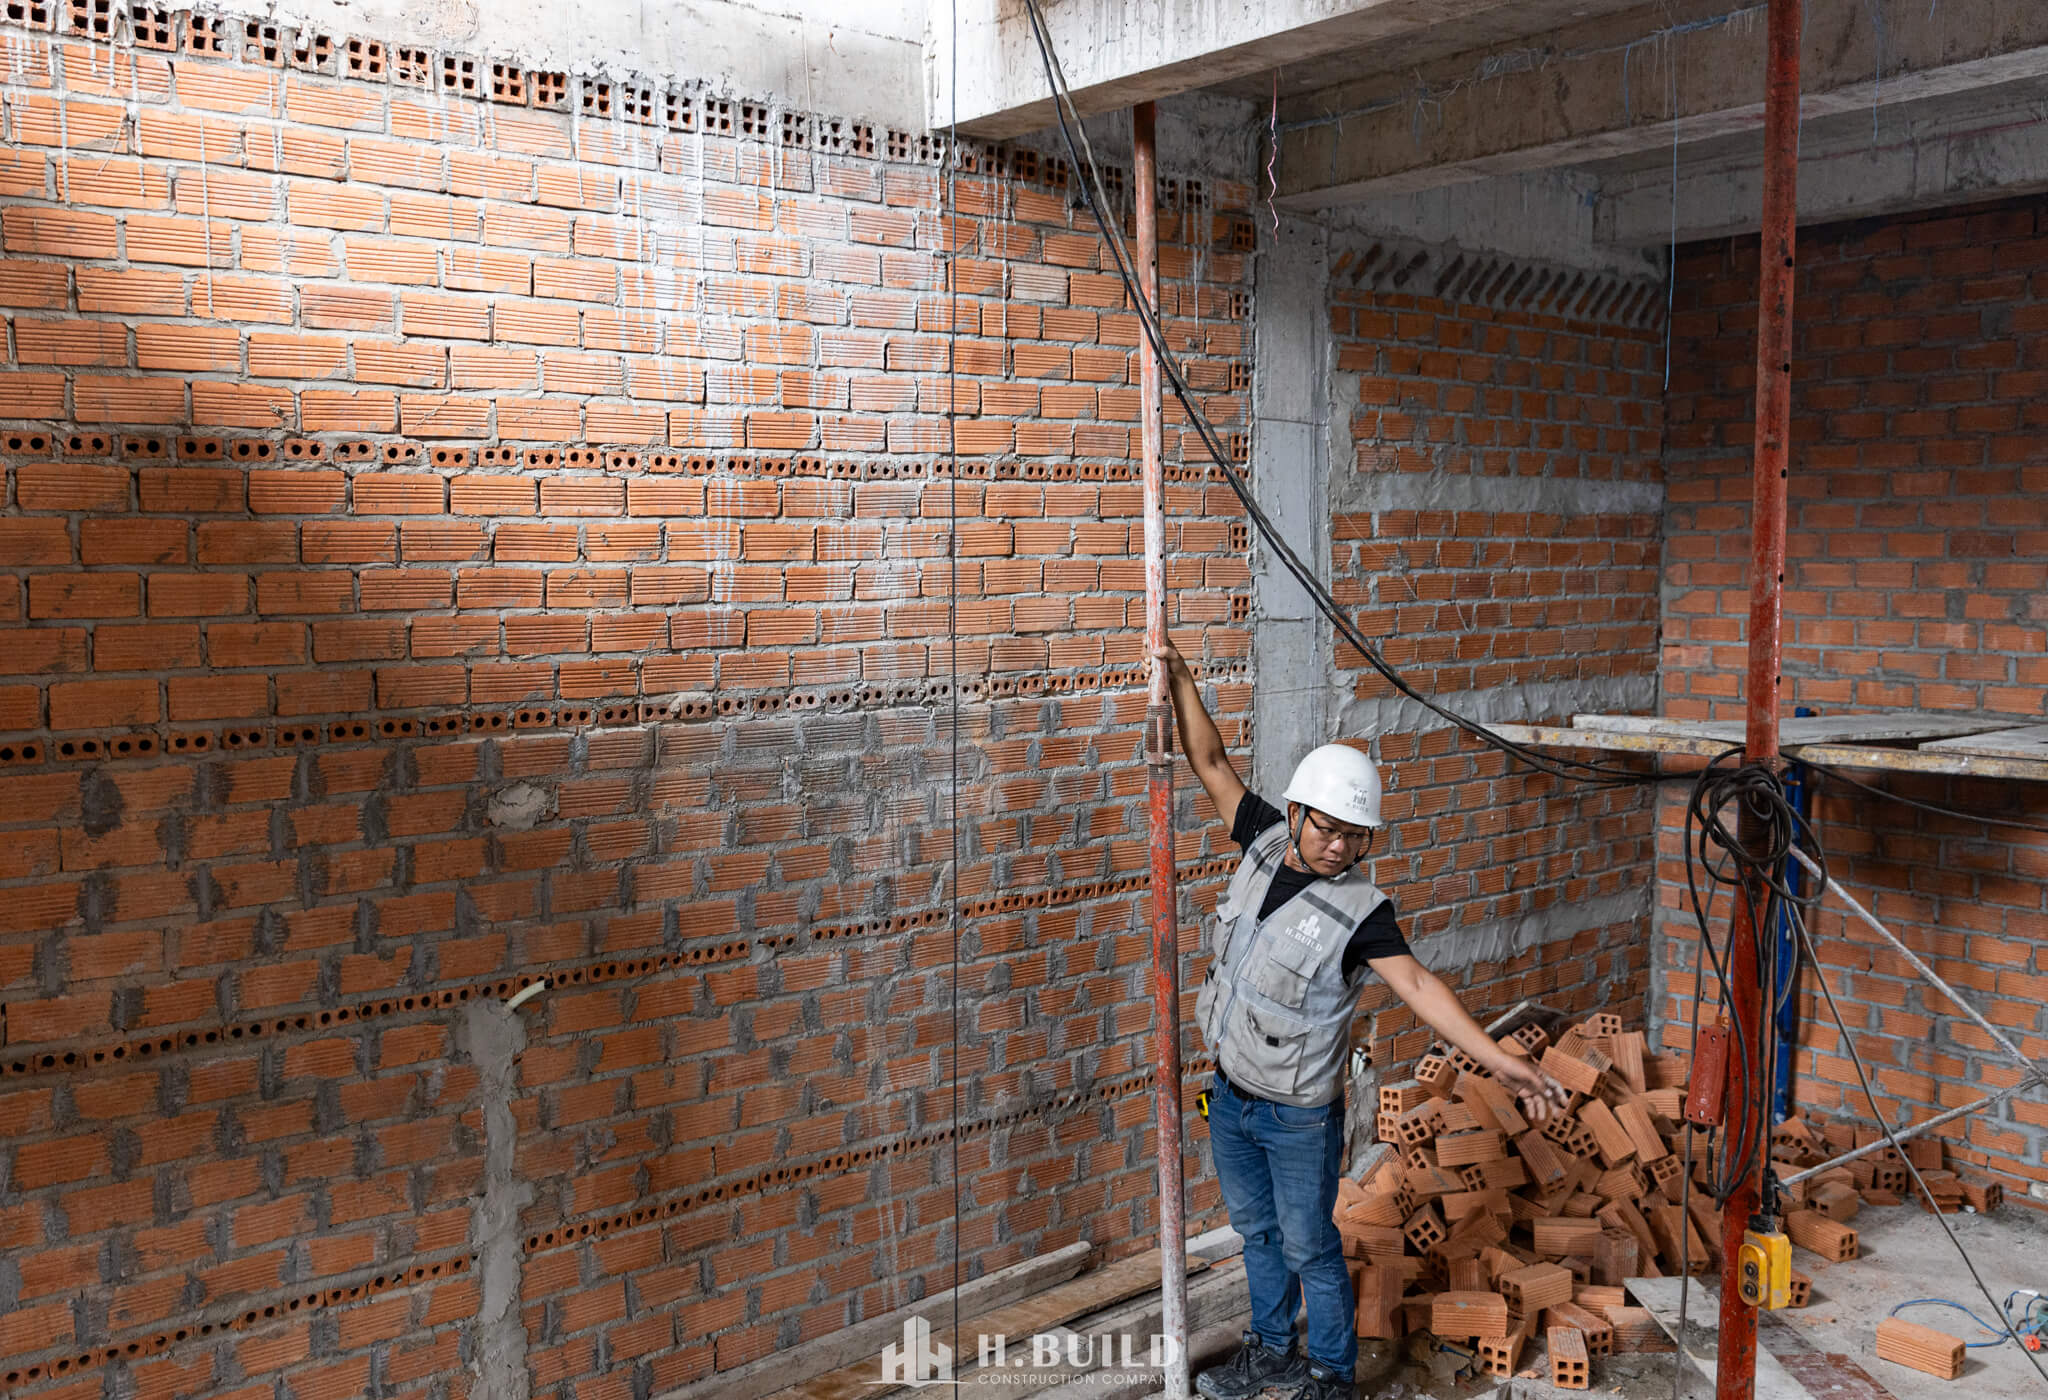 H.BUILD
H.BUILD
H.BUILD
CONSTRUCTION COMPANY